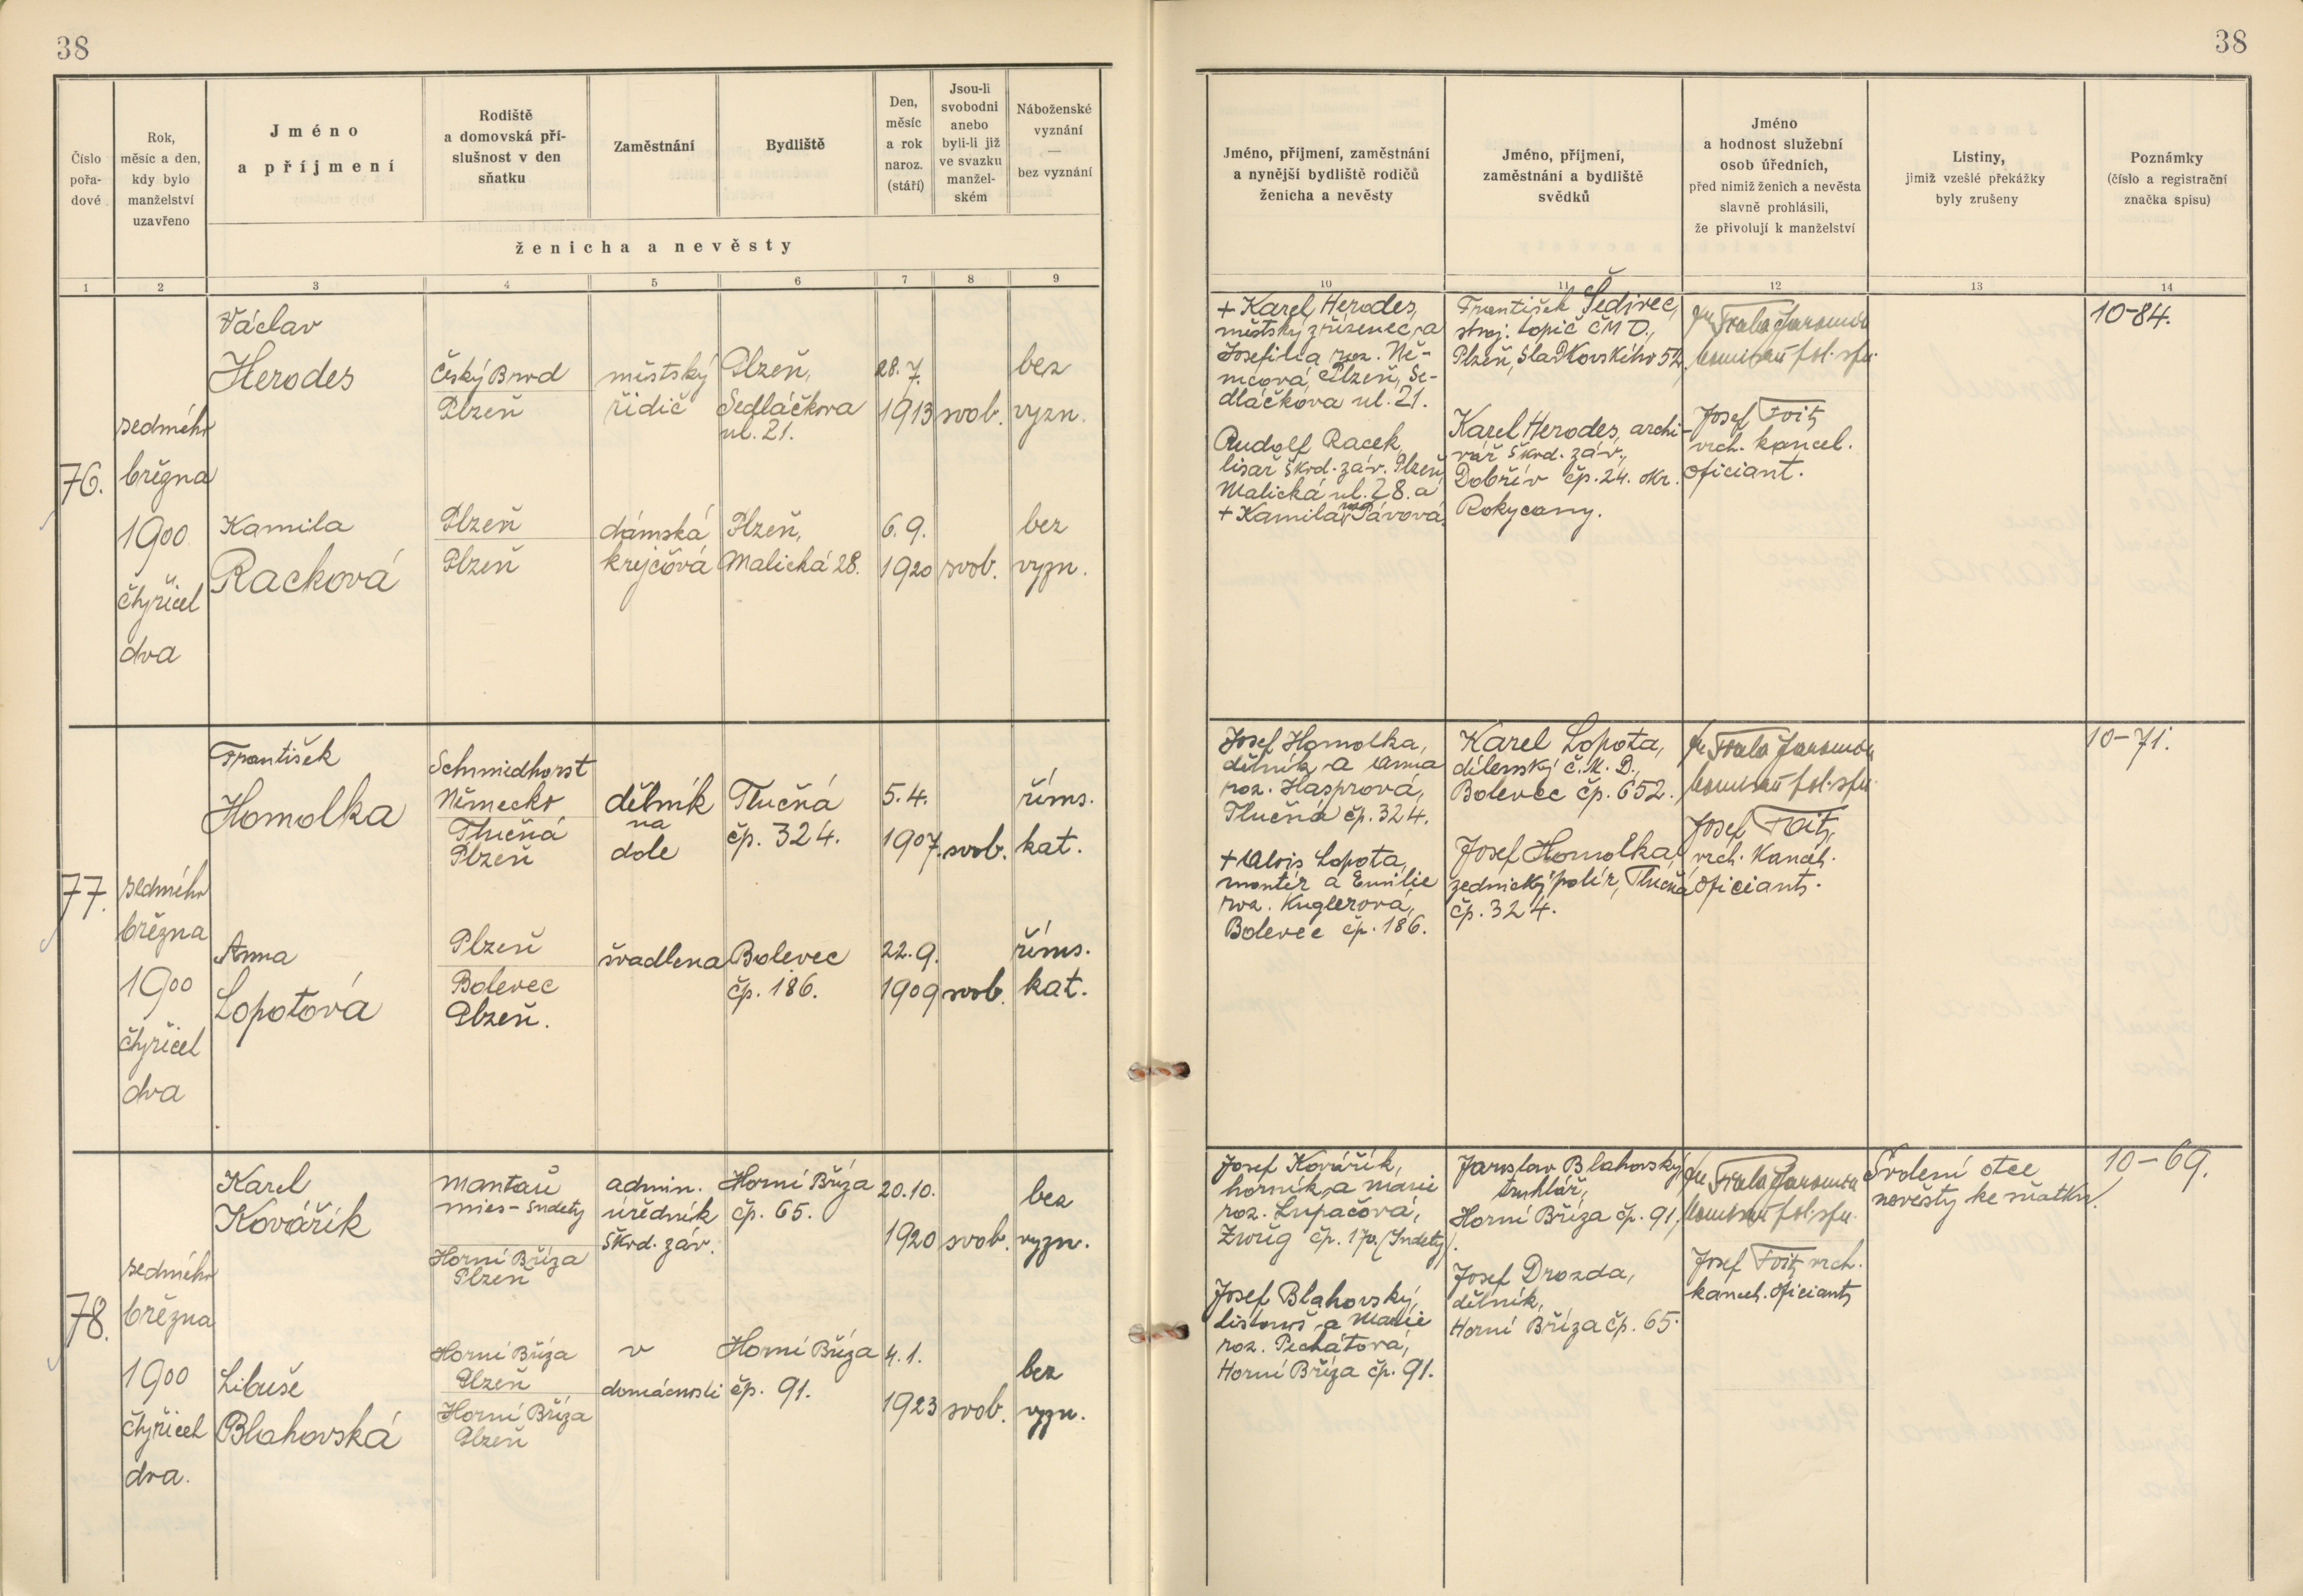 38
38
Číslo pořa-dové
Rok, měsíc a den, kdy bylo manželství uzavřeno
Jméno
a příjmení
Rodiště
a domovská pří-
slušnost v den
sňatku
Zaměstnání
Bydliště
Den,
měsíc
a rok
naroz.
(stáří)
Jsou-li
svobodni
anebo
byli-li již
ve svazku
manžel-
ském
Náboženské
vyznání
—
bez vyznání
ženicha a nevěsty
1 2 3 4 5 6 7 8 9
Jméno, příjmení, zaměstnání
a nynější bydliště rodičů
ženicha a nevěsty
Jméno, příjmení,
zaměstnání a bydliště
svědků
Jméno
a hodnost služební
osob úředních,
před nimiž ženich a nevěsta
slavně prohlásili,
že přivolují k manželství
Listiny,
jimiž vzešlé překážky
byly zrušeny
Poznámky
(číslo a registrační
značka spisu)
10 11 12 13 14
76.
sedmého
března
1900
čtyřicet
dva
Václav
Herodes
Český Brod
Plzeň
městský
řidič
Plzeň,
Sedláčkova
ul. 21.
28. 7.
1913
svob.
bez
vyzn.
Kamila
Racková
Plzeň
Plzeň
dámská
krejčová
Plzeň,
Malická 28.
6. 9.
1920
svob.
bez
vyzn.
+ Karel Herodes,
městský zřízenec, a
Josefina roz. Ně-
mcová, Plzeň, Se-
dláčkova ul. 21.
Rudolf Racek,
lisař Škod. záv. Plzeň,
Malická ul. 28. a
+ Kamila roz. Pávová.
František Šedivec,
stroj. topič ČMD.,
Plzeň, Sladkovského 52.
Karel Herodes, archi-
vář Škod. záv.,
Dobřív čp. 24. okr.
Rokycany.
Josef Foit,
vrch. kancel.
oficiant.
10-84.
77.
sedmého
března
1900
čtyřicet
dva
František
Homolka
Schmiedhorst
Německo
Tlučná
Plzeň
dělník
na
dole
Tlučná
čp. 324.
5. 4.
1907.
svob.
říms.
kat.
Anna
Lopotová
Plzeň
Bolevec
Plzeň.
švadlena
Bolevec
čp. 186.
22. 9.
1909
svob.
říms.
kat.
Josef Homolka,
dělník, a Anna
roz. Hasprová,
Tlučná čp. 324.
+ Alois Lopota,
montér a Emilie
roz. Kuglerová,
Bolevec čp. 186.
Karel Lopota,
dílenský č. M. D.,
Bolevec čp. 652.
Josef Homolka
zednický polír, Tlučná
čp. 324.
Josef Foit,
vrch. Kancel.
oficiant.
10-71.
78.
sedmého
března
1900
čtyřicet
dva.
Karel
Kovářík
Mantau
Mies-Sudety
Horní Bříza
Plzeň
admin.
úředník
Škod. záv.
Horní Bříza
čp. 65.
20. 10.
1920
svob.
bez
vyzn.
Libuše
Blahovská
Horní Bříza
Plzeň
Horní Bříza
Plzeň
v
domácnosti
Horní Bříza
čp. 91.
4. 1.
1923
svob.
bez
vyzn.
Josef Kovářík,
horník, a Marie
roz. Lupačová,
čp. 170. (Sudety).
Josef Blahovský,
a Marie
roz. Pechátová,
Horní Bříza čp. 91.
Jaroslav Blahovský,
truhlář,
Horní Bříza čp. 91.
Josef Drozda,
dělník,
Horní Bříza čp. 65.
Josef Foit, vrch.
kancel. oficiant
Svolení otce
nevěsty ke sňatku.
10-69.